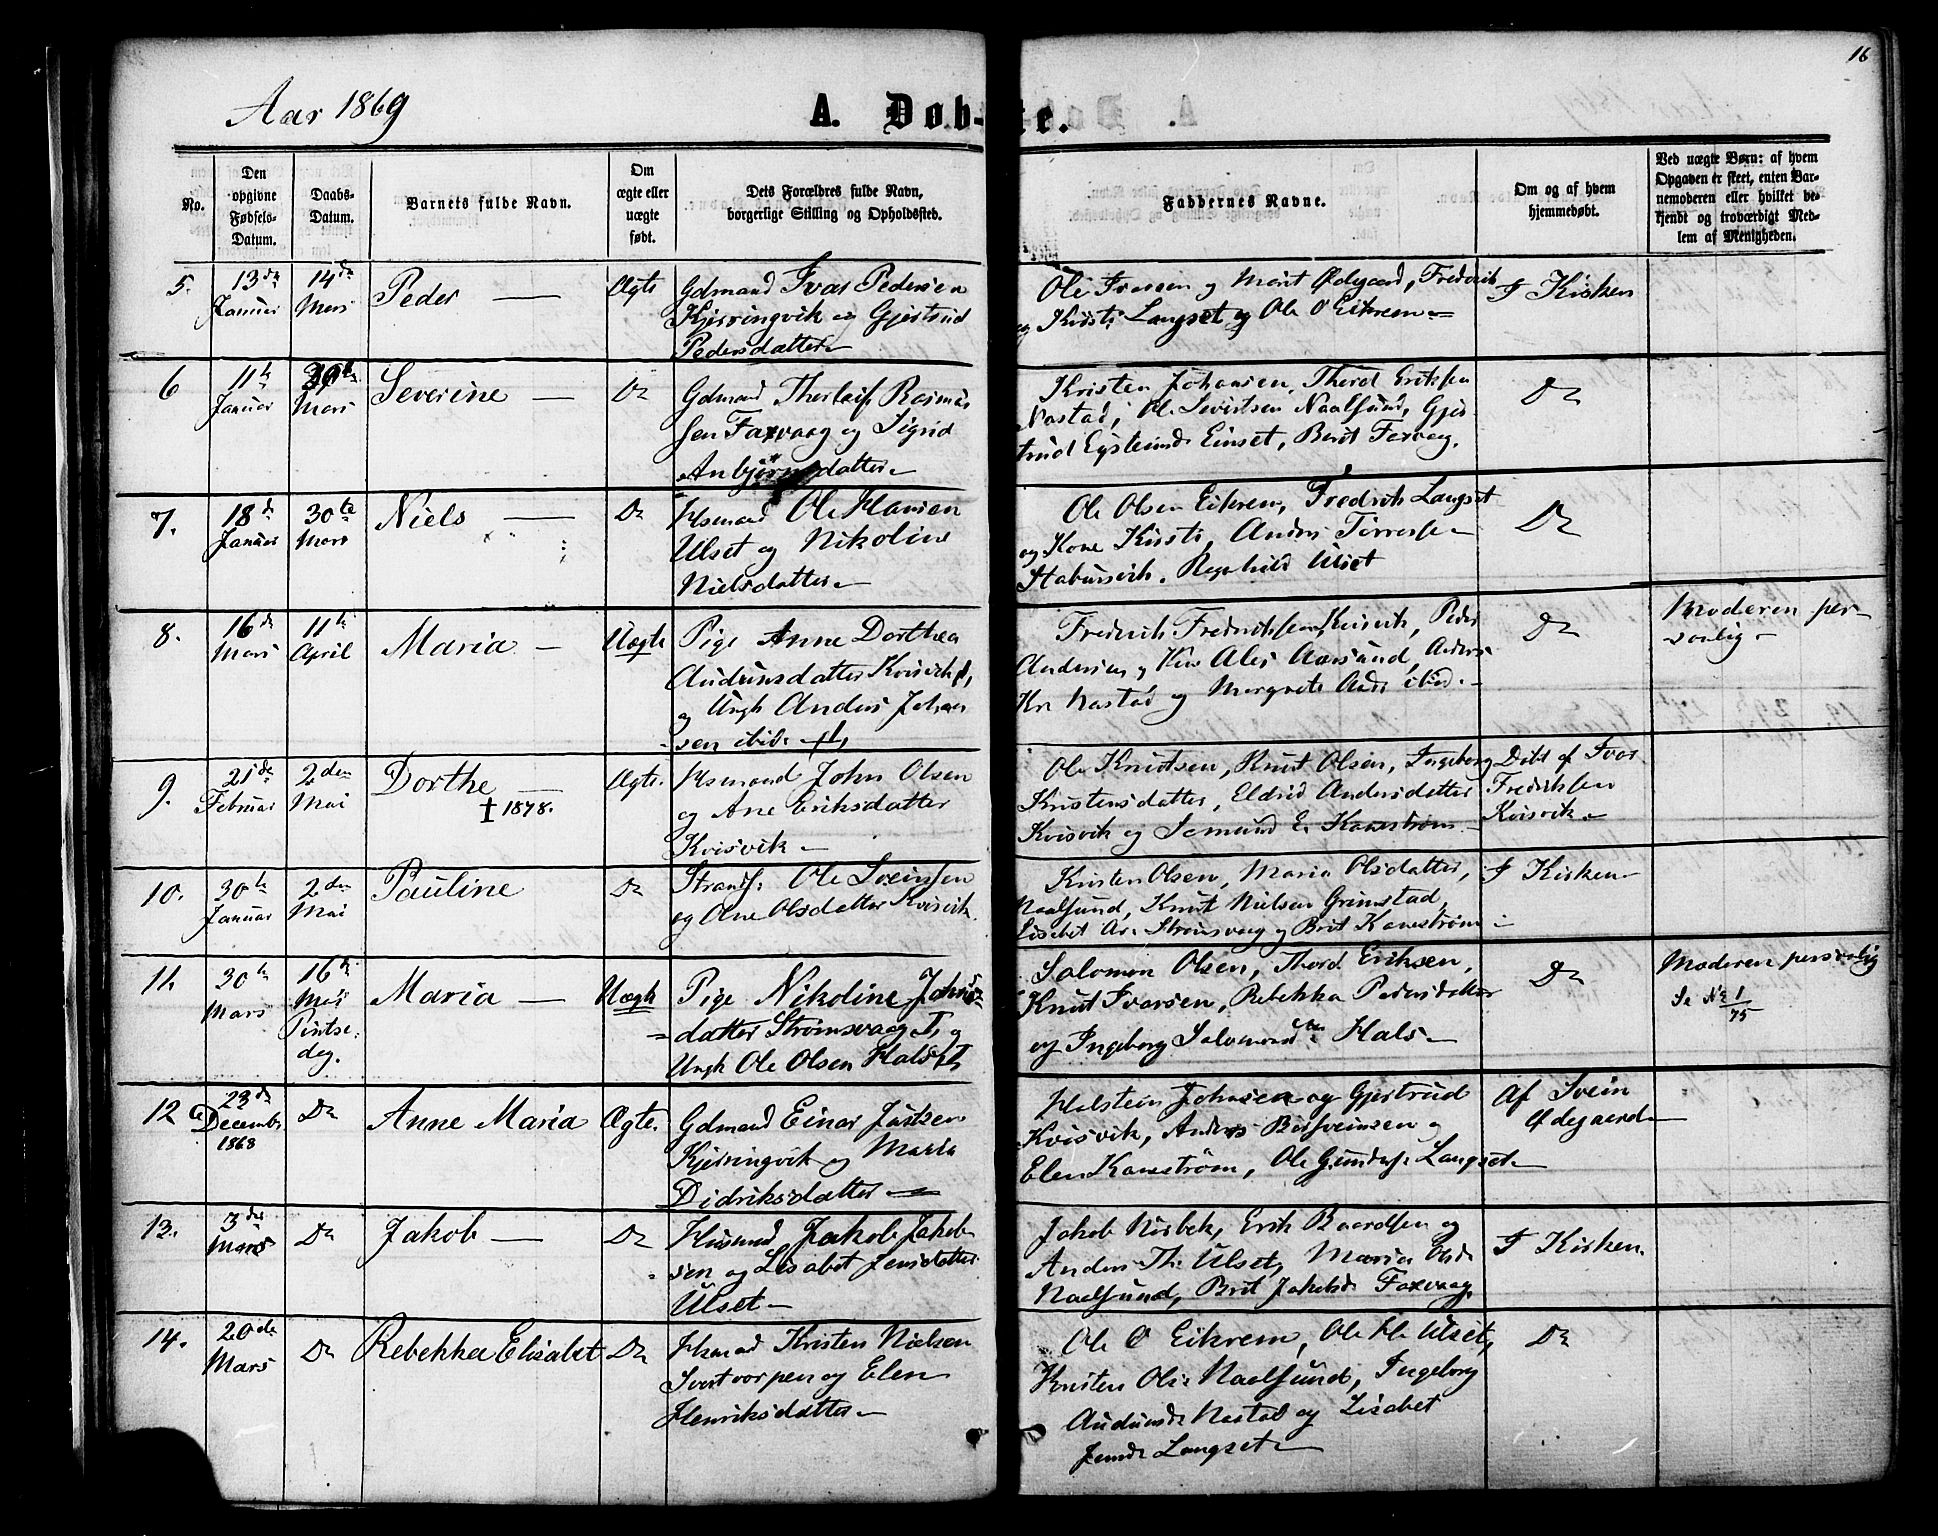 16
Aar 1869
A. Døb-te.
No.
Den
opgivne
Fødsels-
Datum.
Daabs-
Datum.
Barnets fulde Navn.
Om
ægte eller
uægte
født.
Dets Forældres fulde Navn,
borgerlige Stilling og Opholdssted.
Faddernes Navne.
Om og af hvem
hjemmedøbt.
Ved uægte Børn: af hvem
Opgaven er skeet, enten Bar-
nemoderen eller hvilket be-
kjendt og troværdigt Med-
lem af Menigheden.
5. 13de Januar
14de Mars
Peder
Ægte
Gdmand Ivar Pedersen
Kjerringvik og Gjertrud
Pedersdatter
Ole Iversen og Marit Ødegaard, Frederik
og Kirsti Langset og Ole O Eikrem
I Kirken
6 11te Januar
Mars
Severine
Do
Gdmand Thorleif Rasmus
sen Faxvaag og Sigrid
Anbjørnsdatter
Kristen Johansen, Thord Eriksen
Nastad, Ole Sivertsen Naalsund, Gjer
trud Eysteinsd Einset, Berit Faxvaag.
Do
7. 18de Januar
30te Mars
Niels
Do
Husmand Ole Hansen
Ulset og Nikoline
Nielsdatter
Ole Olsen Eikrem, Fredrik Langset
og Kone Kirsti, Anders
Stabursvik, Ragnhild Ulset
Do
8. 16de Mars
11te April
Maria
Uægte
Pige Anne Dorthea
Audunsdatter Kvisvik
og Ungk Anders Johan
sen ibid.
Frederik Fredriksen Kvisvik, Peder
Andersen, Ales Aarsund, Anders
Kr Nastad og Margrete ibid.
Do
Moderen per-
sonlig
9. 21de Februar
2den Mai
Dorthe
† 1878.
Ægte.
Husmand John Olsen
og Ane Eriksdatter
Kvisvik
Ole Knudsen, Knut Olsen, Ingeborg
Kristensdatter, Eldrid Andersdatter
Kvisvik og E. Kanestrøm
Døbt af Ivar
Fredriksen
Kvisvik
10. 30te Januar
2den Mai
Pauline
Do
Strands. Ole Sveinsen
og Olne Olsdatter Kvisvik.
Kristen Olsen, Maria Olsdatter,
Naalsund, Knut Nielsen Grimstad,
Lisabet Strømsvaag og Brit Kanestrøm
I Kirken
11. 30te Mars
16te Mai
Pintse-
dag.
Maria
Uægte
Pige Nikoline Johns
datter Strømsvaag og
Ungk Ole Olsen Hals
Salomon Olsen, Thord Eriksen,
Knut Ivarsen, Rebekka Pedersdatter
og Ingeborg Hals
Do
Moderen personlig
Se No 1/75
12 23de
December
1868
Do
Anne Maria
Ægte.
Gdmand Einar Justsen
Kjerringvik og Maria
Didriksdatter
Halstein Johnsen og Gjertrud
Kvisvik, Anders og
Elen Kanestrøm, Ole Langset
Af Svein
Ødegaard
13. 3die Mars
Do
Jakob
Do
Husmd Jakob Jakob
sen og Lisabet Jensdatter
Ulset
Jakob Nisbek, Erik Baardsen og
Anders Th: Ulset, Maria Olsd
Naalsund, Brit Jakobsd Faxvaag.
I Kirken.
14. 20de Mars
Do
Rebekka Elisabet
Do
Husmand Kristen Nielsen
og Elen
Henriksdatter
Ole O Eikrem, Ole Ulset,
Kristen Ols: Naalsund, Ingeborg
Audunsd: Nastad og Lisabet
Jensd: Langset
Do